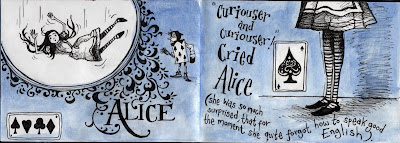 ALICE
"Curiouser
and
curiouser!"
Cried
Alice
(she was so much
surprised, that for
the moment she quite forgot how to speak good
English).